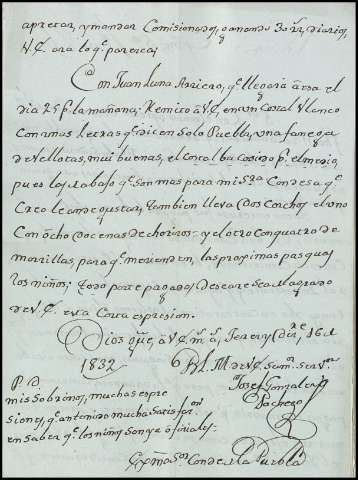 apretar, y mandar Comisionados, ganando 30 rs. diarios,
V.E. ara lo q.e paresca,
Con Juan Luna Arriero, q.e llegará a esa el
dia 25 p.r la mañana; Remito a V.E. en un Costal blanco
Con unas letras q.e dicen Solo Puebla, una fanega
de Vellotas, mui buenas, el Costal ba cosido p.r el medio,
pues los de abajo q.e son mas para mi S.ra Condesa q.e
Creo le an de gustar, tambien lleva dos Corchos el uno
Con ocho docenas de chorizos y el otro con quatro de
morcillas, para q.e merienden, las proximas pascuas
los niños; todo porte pagado; deseare sea del agrado
de V.E. esta Corta expresion.
Dios gue. a V.E. m.s a.s Jerez y Dic.e 16 de
1832
B.L.M. de V.E. su m.or Serv.or
Josef Gonzalez
Pacheco
P.D.
mis Sobrinos, muchas espre
siones, q.e an tenido mucha satisfac.on
en saber q.e los niños son ya oficiales.
Exmo. S.or Conde de la Puebla